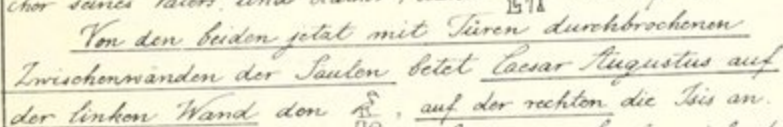 chor seines Vaters, und
1571
Von den beiden jetzt mit Türen durchbrochenen
Zwischenwänden der Saulen betet Caesar Augustus auf
der linken Wand den , auf der rechten die Isis an.